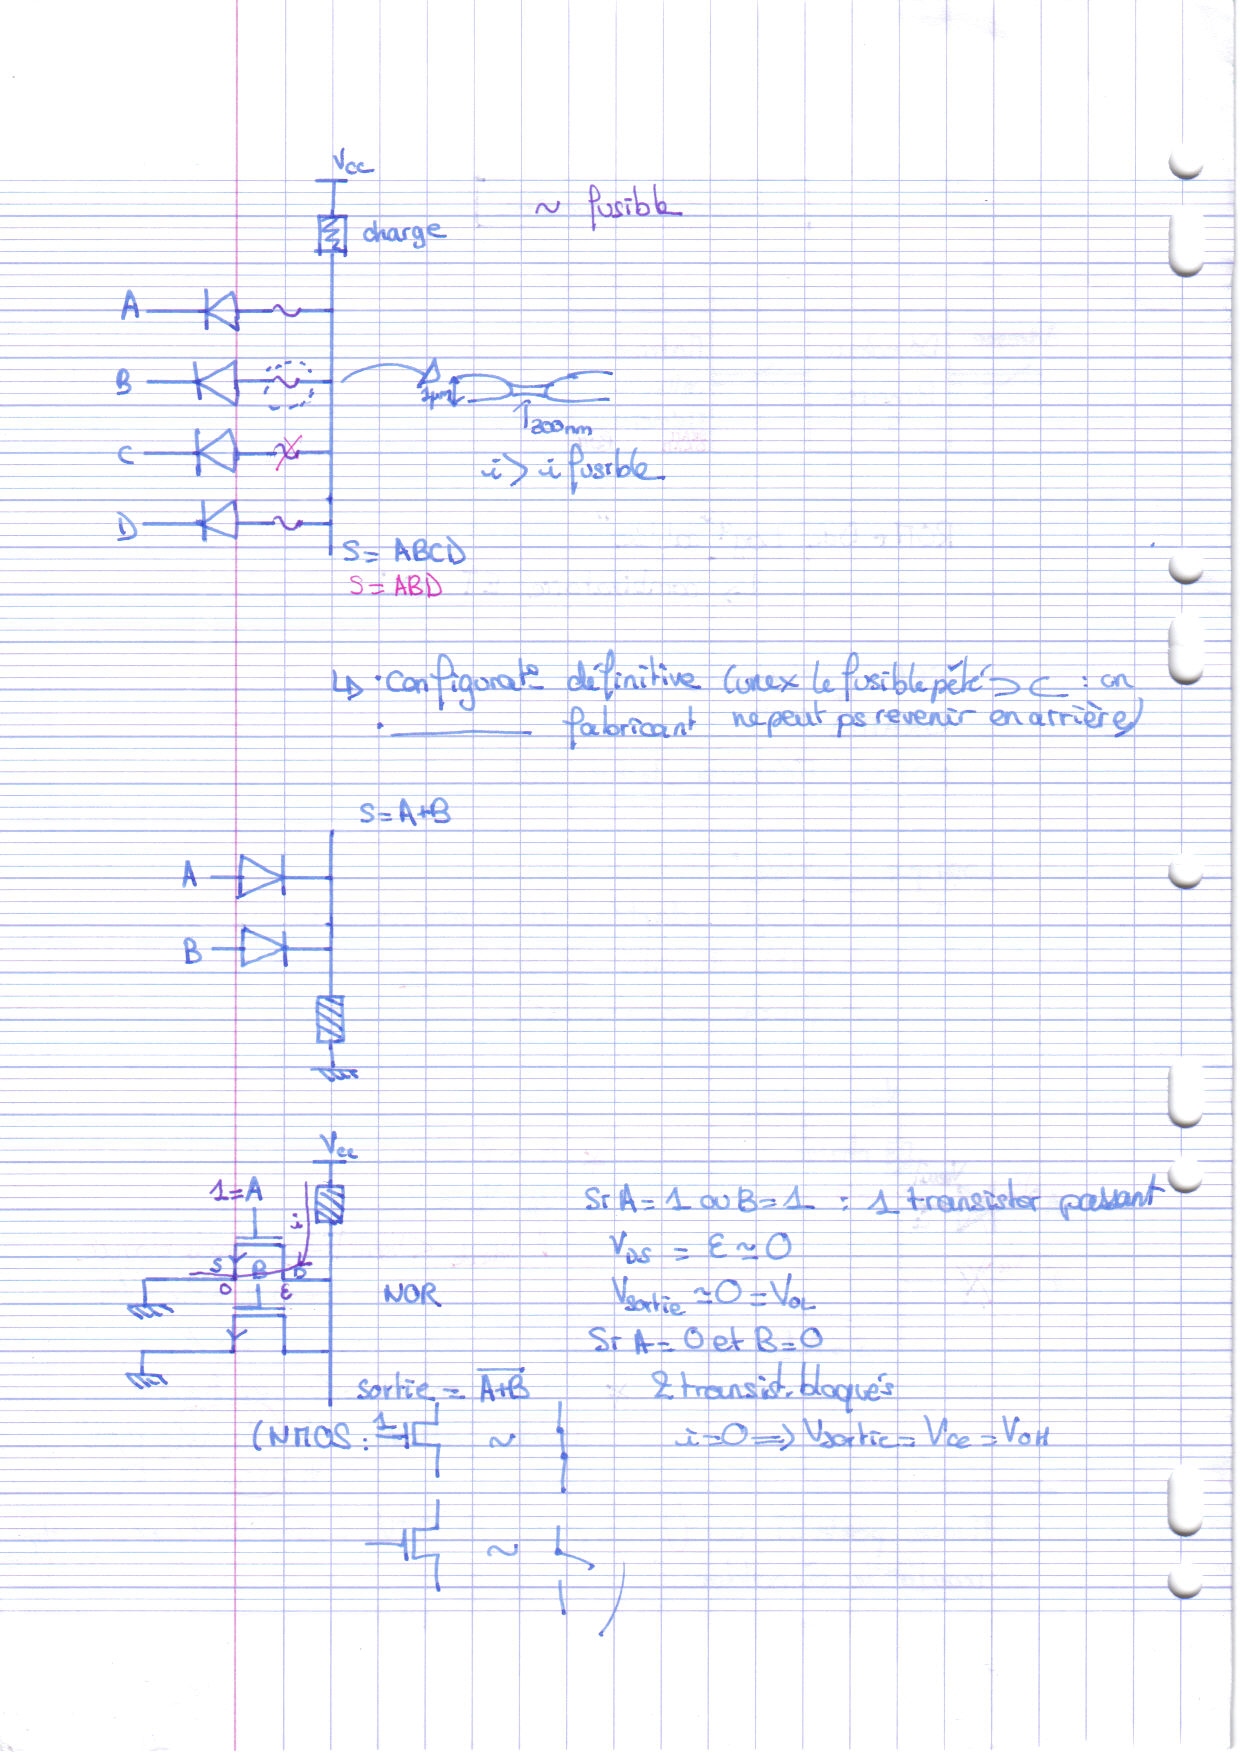 Vcc
~ fusible
charge
A
B
1µm
200nm
C
i > i fusible
D
S = ABCD
S = ABD
↳ • Configurat° définitive (une x le fusible pété ⊃⊂ : on
• ———— fabricant ne peut ps revenir en arrière)
S = A+B
A
B
Vcc
1=A
i
S B D
0 ε
NOR
sortie = \overline{A+B}
(NMOS : 1 ~
~ )
Si A = 1 ou B = 1 : 1 transistor passant
V_DS = ε ≃ 0
V_sortie ≃ 0 = V_OL
Si A = 0 et B = 0
2 transist. bloqués
i = 0 => V_sortie = Vcc = V_OH